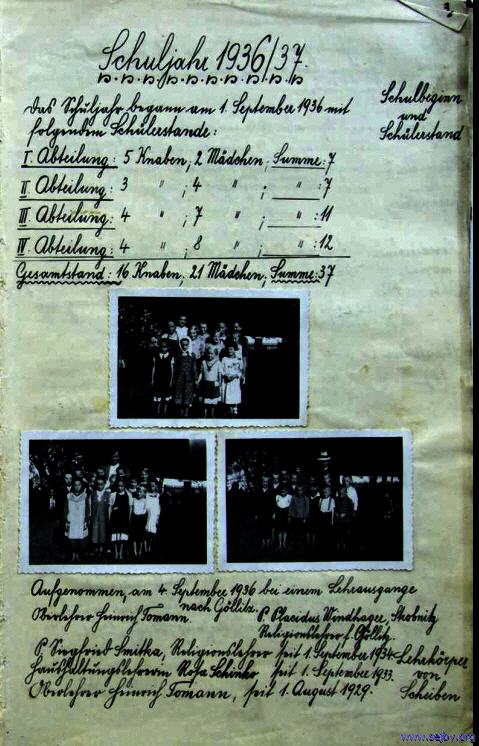 Schuljahr 1936/37.
Schulbeginn
und
Schülerstand
Das Schuljahr begann am 1. September 1936 mit
folgendem Schülerstande:
I. Abteilung: 5 Knaben; 2 Mädchen; Summe: 7
II. Abteilung: 3 " ; 4 " ; " : 7
III. Abteilung: 4 " ; 7 " ; " : 11
IV. Abteilung: 4 " ; 8 " ; " : 12
Gesamtstand: 16 Knaben, 21 Mädchen, Summe: 37
Aufgenommen am 4. September 1936 bei einem Lehrausgange
nach Göllitz.
Oberlehrer Heinrich Tomann. P. Placidus Windhager,
Religionslehrer f. Göllitz.
P. Siegfried Smitka, Religionslehrer seit 1. September 1934
Haushaltungslehrerin Rosa Schinko seit 1. September 1933.
Oberlehrer Heinrich Tomann, seit 1. August 1929.
Lehrkörper
von
Scheiben